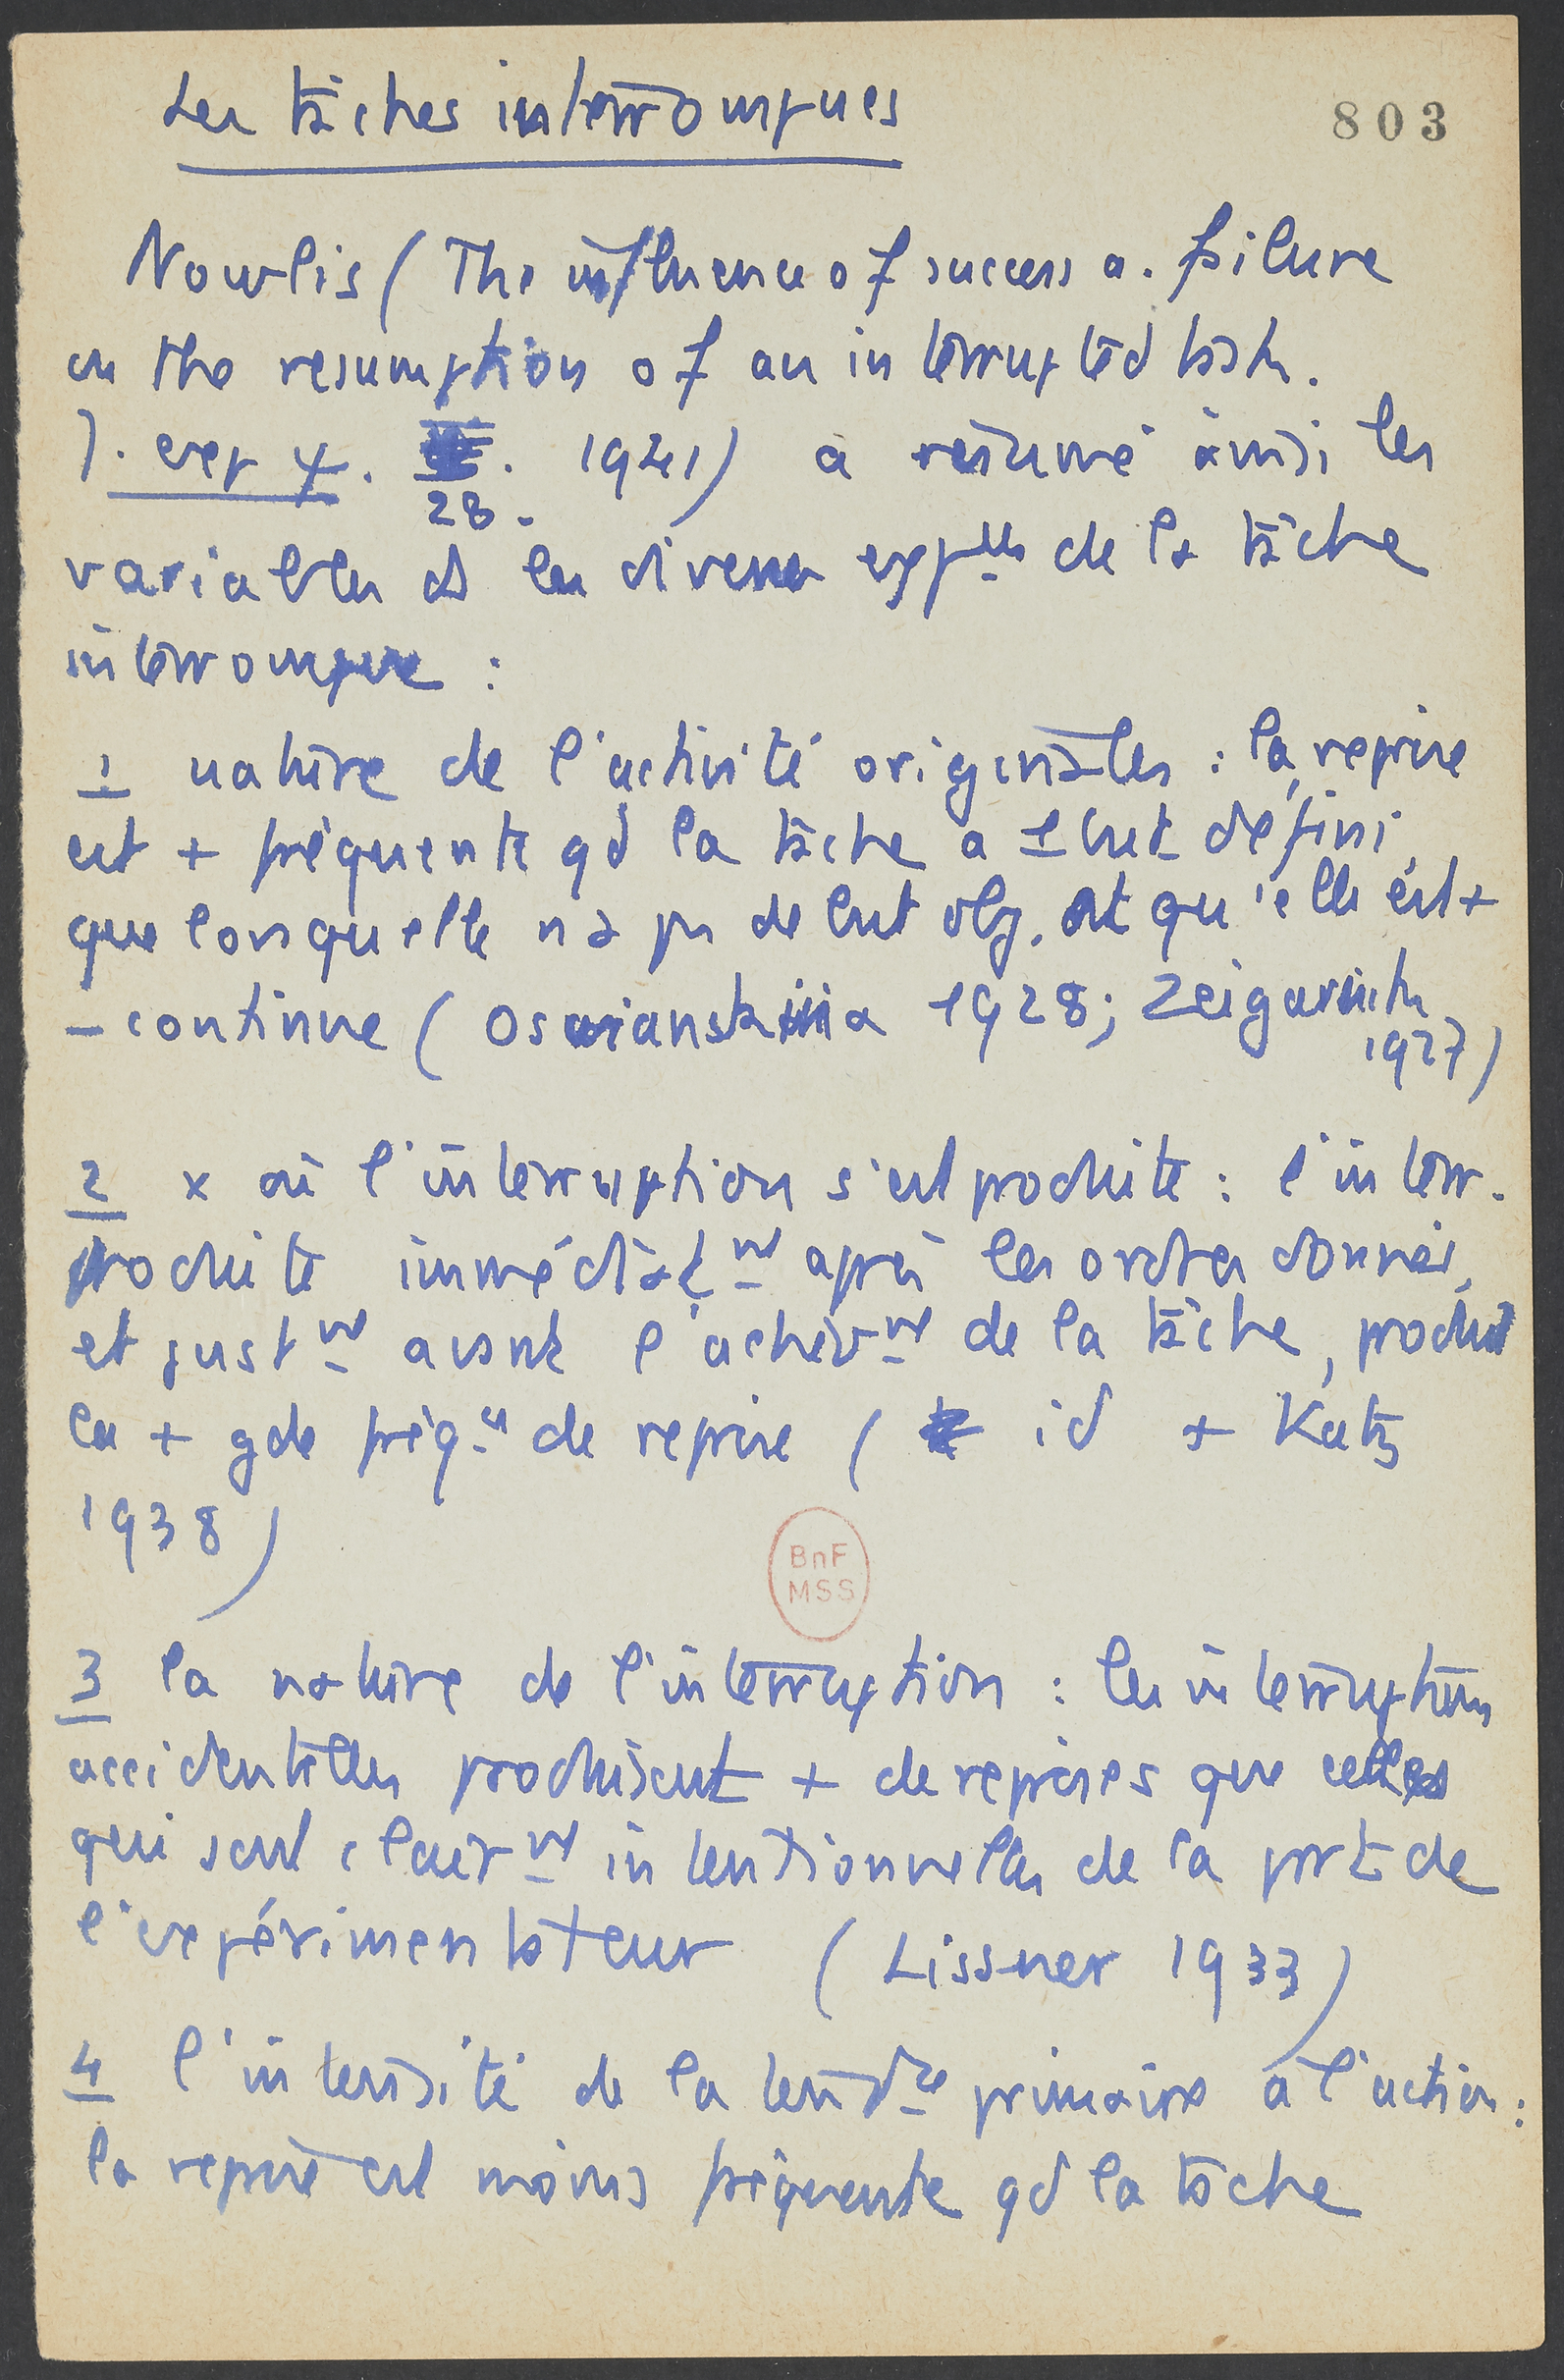 Les tâches interrompues
803
Nowlis (The influence of success a. failure
on the resumption of an interrupted task.
J. exp ψ. 28. 1941) a résumé ainsi les
variables ds les diverses exp^lles de la tâche
interrompue :
1 nature de l'activité originales : la reprise
est + fréquente qd la tâche a 1 but défini,
que lorsqu'elle n'a pas de but obj. et qu'elle est +
- continue (Osvianskaiia 1928; Zeigarnich
1927)
2 x où l'interruption s'est produite : l'interr.
produite immédiat^nt après les ordres donnés,
et just^nt avant l'achèv^nt de la tâche, produit
la + gde fréq^ce de reprise ( id + Katz
1938)
BnF
MSS
3 la nature de l'interruption : les interruptions
accidentelles produisent + de reprises que celles
qui sont clair^nt intentionnelles de la part de
l'expérimentateur (Lissner 1933)
4 l'intensité de la tend^ce primaire à l'action :
la reprise est moins fréquente qd la tâche